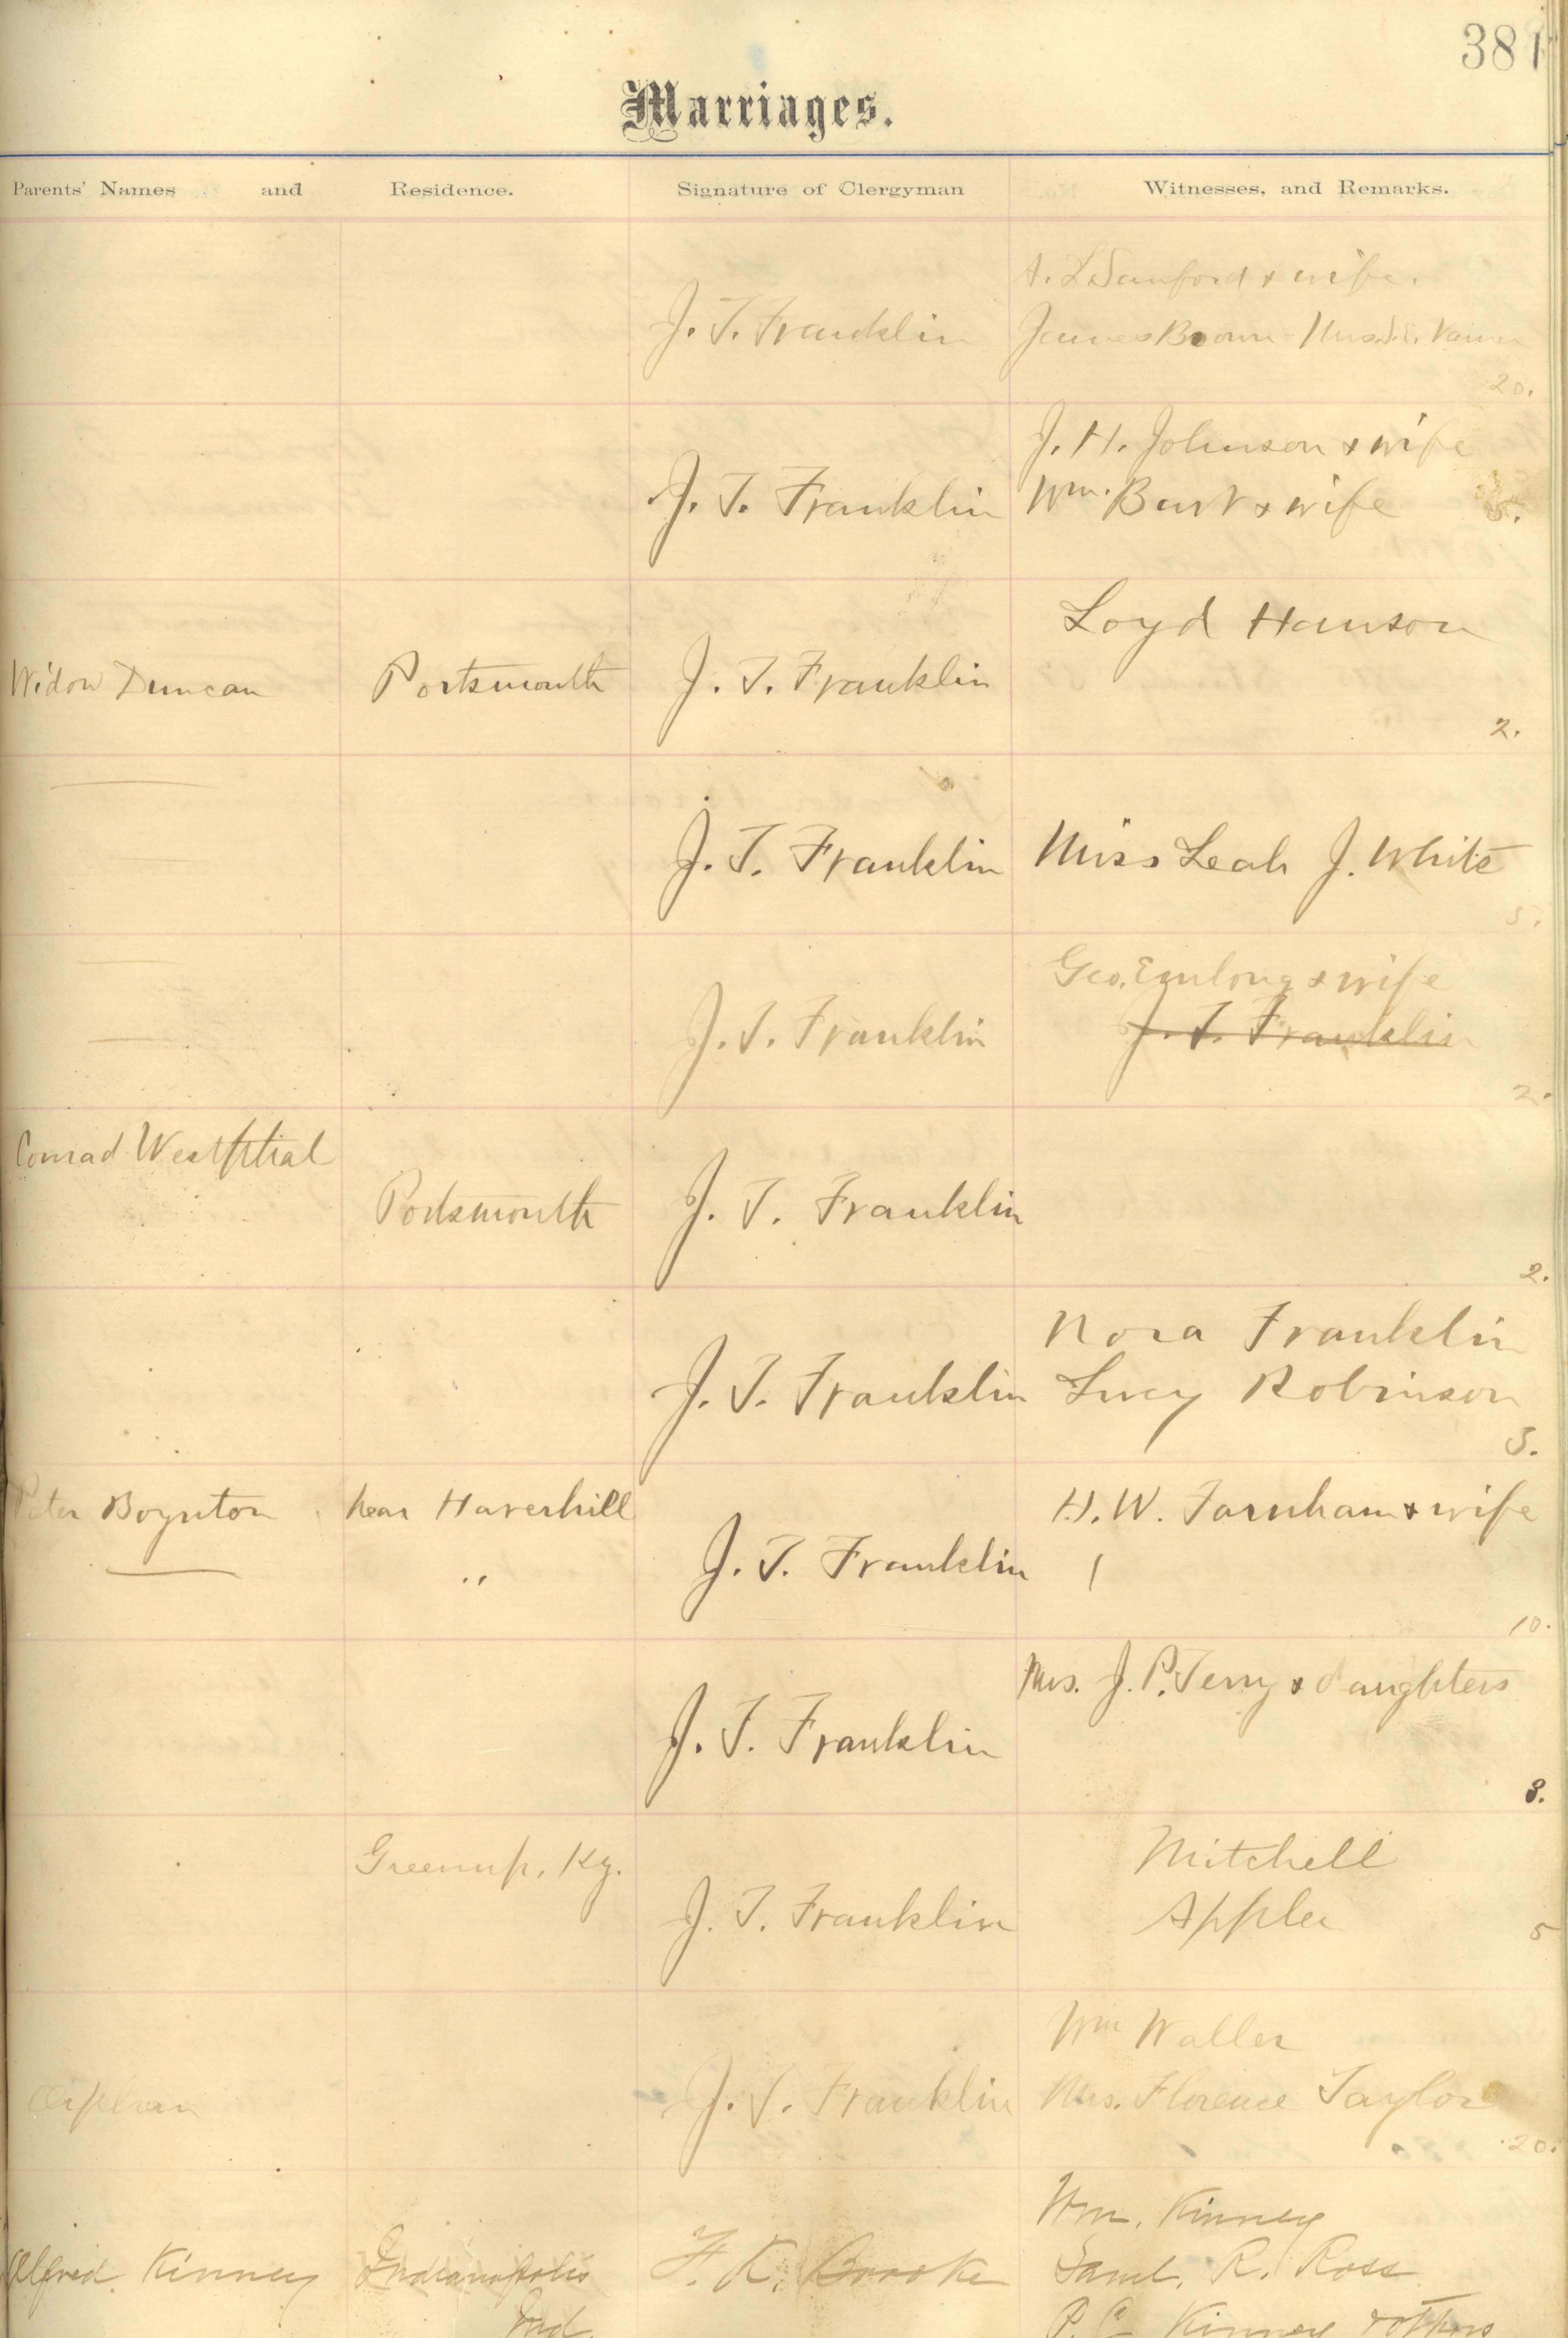 381
Marriages.
Parents' Names and Residence. Signature of Clergyman Witnesses, and Remarks.
& wife.
J. T. Franklin James Brown
20.
J. H. Johnson & wife
J. T. Franklin Wm. Burt & wife
5.
Loyd Hanson
Widow Duncan Portsmouth J. T. Franklin
2.
J. T. Franklin Miss Leah J. White
5.
Geo. Emlong & wife
J. T. Franklin J. T. Franklin
2.
Conrad Westphal
Portsmouth J. T. Franklin
2.
Nora Franklin
J. T. Franklin Lucy Robinson
5.
Peter Boynton near Haverhill H. W. Farnham & wife
" J. T. Franklin
10.
Mrs. J. P. Terry & daughters
J. T. Franklin
8.
Greenup, Ky. Mitchell
J. T. Franklin Appler
5
Wm Waller
Orphan J. T. Franklin Mrs. Florence Taylor
20.
Wm. Kinney
Alfred Kinney Indianapolis F. K. Brooke Saml. R. Ross
Ind. P. C. Kinney & others